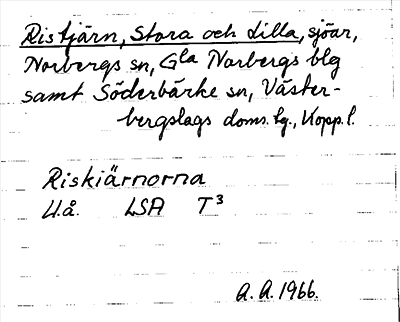 Ristjärn, Stora och Lilla, sjöar,
Norbergs sn, Gla Norbergs blg
samt Söderbärke sn, Väster-
bergslags doms. lg., Kopp. l.
Riskiärnorna
U.å. LSA T³
A. A. 1966.